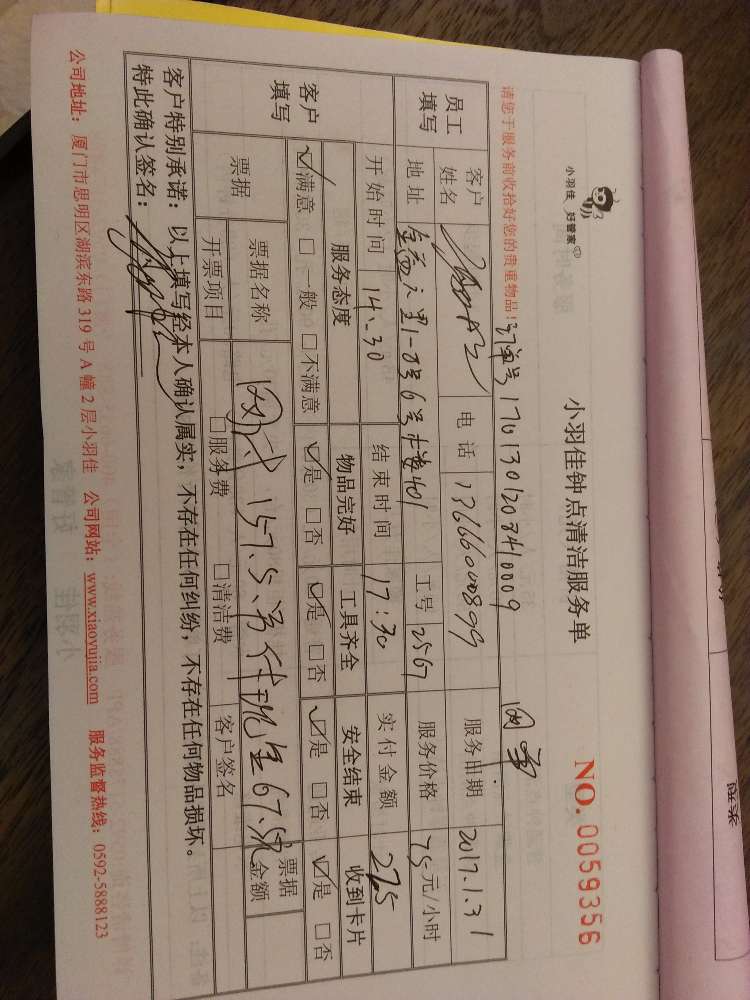 小羽佳 好管家
小羽佳钟点清洁服务单
NO. 0059356
请您于服务前收拾好您的贵重物品!
订单号 1701301208410009
员工填写
客户姓名
电话 13666000899
服务日期 2017.1.31
地址
工号 2567
服务价格 75元/小时
开始时间 14:30 结束时间 17:30 实付金额 225
客户填写
服务态度 物品完好 工具齐全 安全结束 收到卡片
☑满意 □一般 □不满意 ☑是 □否 ☑是 □否 ☑是 □否 ☑是 □否
票据 票据名称 票据金额
开票项目 □服务费 □清洁费 客户签名
客户特别承诺:以上填写经本人确认属实,不存在任何纠纷,不存在任何物品损坏。
特此确认签名:
公司地址: 厦门市思明区湖滨东路 319 号 A 幢 2 层小羽佳 公司网站:www.xiaoyujia.com 服务监督热线:0592-5888123